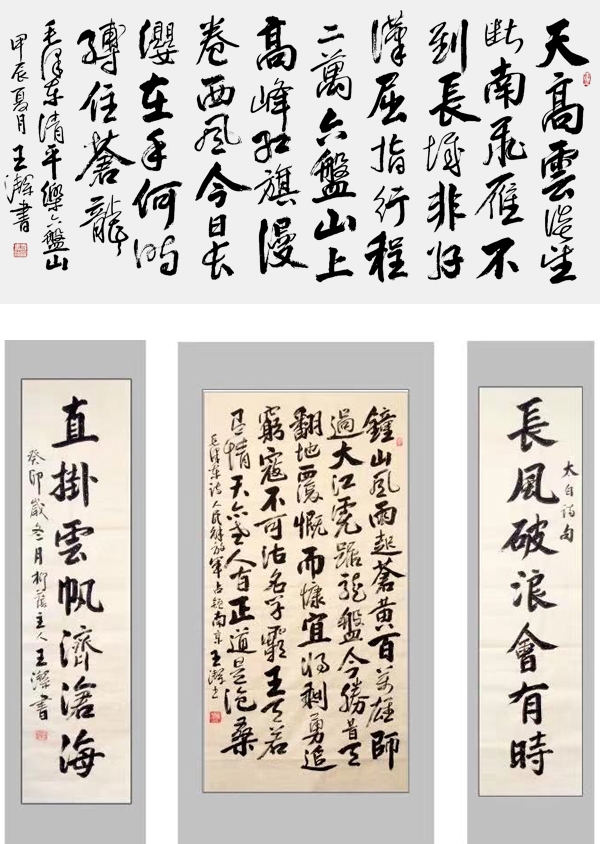 天高雲淡望
斷南飛雁不
到長城非好
漢屈指行程
二萬六盤山上
高峰紅旗漫
卷西風今日長
纓在手何時
縛住蒼龍
毛澤東清平樂六盤山
甲辰夏月王書
長風破浪會有時
太白詩句
鐘山風雨起蒼黃百萬雄師
過大江虎踞龍盤今勝昔天
翻地覆慨而慷宜將剩勇追
窮寇不可沽名學霸王天若
有情天亦老人間正道是滄桑
毛澤東詩人民解放軍占領南京王書
直掛雲帆濟滄海
癸卯歲冬月柳蔭主人王書